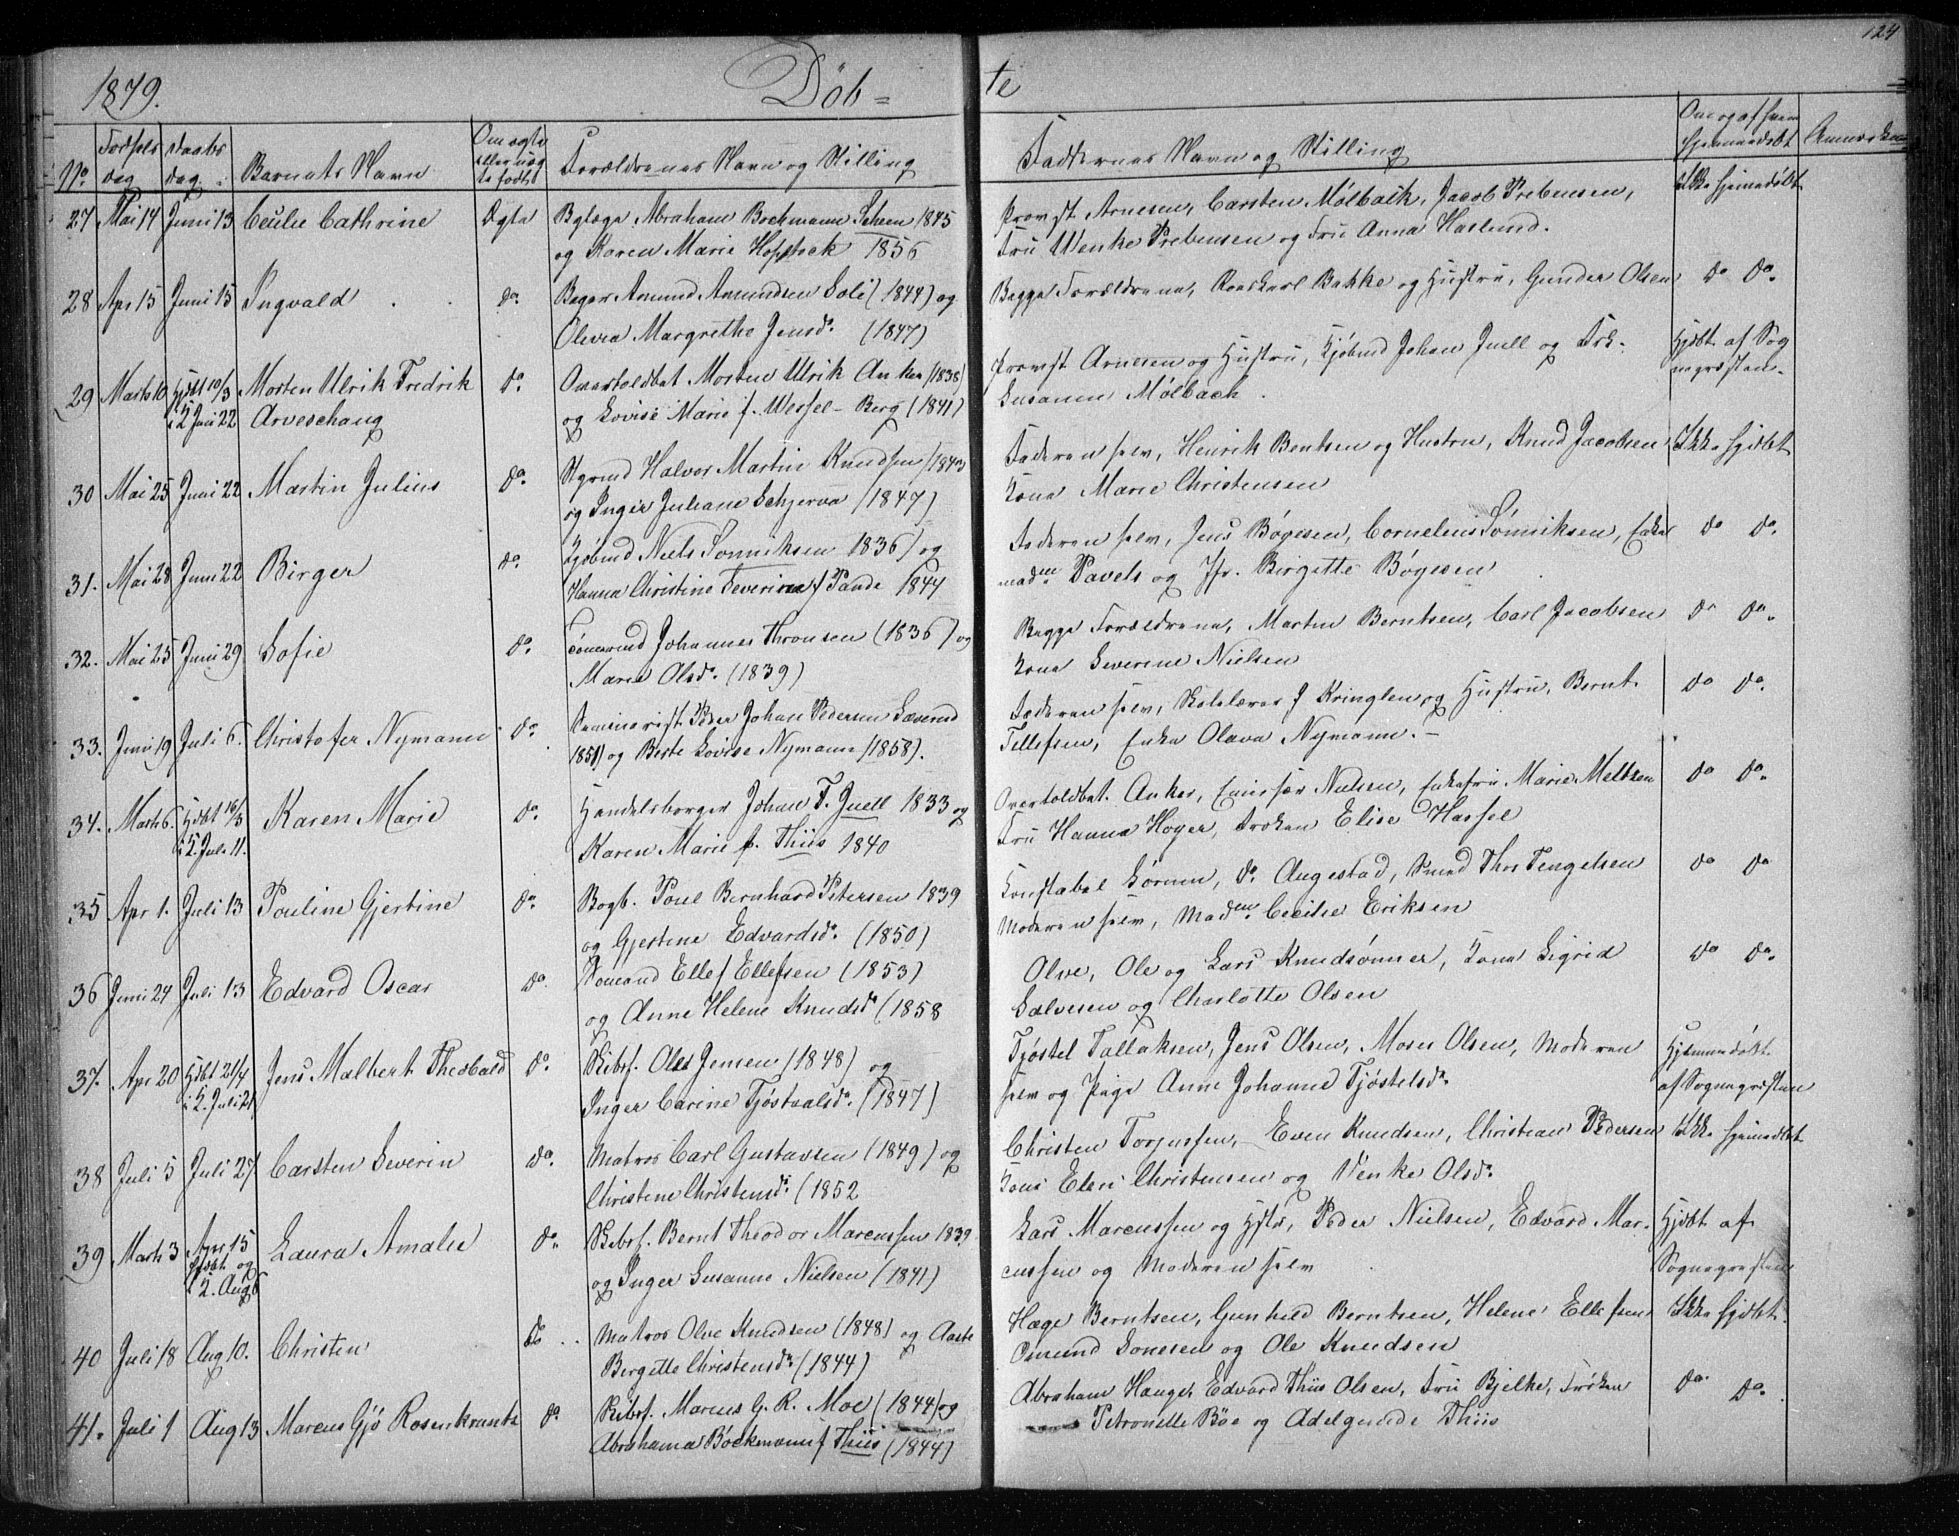 124
1879. Døb = te
No. Fødsels dag Daabs dag Barnets Navn Om ægte eller uæg te født Forældrenes Navn og Stilling Faddernes Navn og Stilling Om og af hvem hjemmedøbt
27 Mai 14 Juni 13 Cecilie Cathrine Ægte Bylæge Abraham Bockmann Scheen 1845 Provst Arnesen, Carsten Mølbach, Jacob Prebensen, Ikke hjemmedøbt
og Karen Marie Hopstock 1856 Fru Wenke Prebensen og Fru Anna Haslund.
28 Apr 15 Juni 15 Ingvald do. Bager Amund Amundsen Solli (1844) og Begge Forældrene, Roeskarl Bakke og Hustru, Gunder Olsen do do.
Olevia Margrethe Jensd. (1847)
29 Marts 10 Hjdbt 10/3 Morten Ulrik Fredrik do Overtoldbet Morten Ulrik Anker (1838) Provst Arnesen og Hustru, Kjøbmd Johan Juell og Frk. Hjdbt af Sog
i K Juni 22 Arveschoug og Lovise Marie f. Wessel-Berg (1841) Susanne Mølbach. nepræsten.
30 Mai 25 Juni 22 Martin Julius do. Styrmd Halvor Martin Knudsen (1843 Faderen selv, Henrik Bentsen og Hustru, Knud Jacobsen Ikke hjdbt
og Inger Juliane Schjerva (1847) Kone Marie Christensen
31. Mai 28 Juni 22 Birger do. Kjøbmd Niels Sønniksen 1836) og Faderen selv, Jens Bøgesen, Cornelius Sønniksen, Enke do do.
Hanna Christine Severine f Paude 1844 mad. Pavels og Jfr. Birgitte Bøgesen
32. Mai 25 Juni 29 Sofie do. Tømmermd Johannes Thronsen (1836) og Begge Forældrene, Martin Berntsen, Carl Jacobsen do do.
Maren Olsd. (1839) Kone Severine Nielsen
33. Juni 19 Juli 6. Christofer Nymann do. Seminarist Peder Johan Pedersen Løvsund Faderen selv, Skolelærer J Kringlen og Hustru, Bernt do do.
1851) og Berte Lovise Nymann (1858). Tellefsen, Enke Olava Nymann. -
34. Marts 6. Hjdbt 16/3 Karen Marie do. Handelsborger Johan F. Juell 1833 og Overtoldbet. Anker, Emissær Nielsen, Enkefru Marie Meltzen do do.
i K. Juli 11. Karen Marie f. Thiis 1840 Fru Hanna Høyer, Frøken Elise Hassel
35 Apr 1. Juli 13 Pouline Gjertine do. Bogb. Poul Bernhard Petersen 1839 Konstabel Sørum, do. Augestad, Smed Thor Tengelsen do do
og Gjertine Edvardsd. (1850) Moderen selv, Mad. Cecilie Eriksen
36 Juni 24 Juli 13 Edvard Oscar do. Sømand Ellef Ellefsen (1853) Olve, Ole og Lars Knudsønner, Kone Sigrid do do.
og Anne Helene Knudsd. (1858 Salvesen og Charlotte Olsen
37. Apr 20 Hjdbt 21/4 Jens Malbert Theobald do. Skibsf. Ole Jensen (1848) og Tjøstel Tallaksen, Jens Olsen, Moses Olsen, Moderen Hjemmedøbt
i K. Juli 21 Inger Carine Tjøstaalsd. (1847) selv og Pige Anne Johanne Tjøstelsd. af Sognepræsten
38 Juli 5 Juli 27 Carsten Severin do. Matros Carl Gustavsen (1849) og Christen Torjussen, Even Knudsen, Christian Pedersen Ikke hjemmedbt
Christine Christensd. (1852 Kone Elen Christensen og Wenke Olsd.
39 Marts 3 Apr 15 Laura Amalie do. Skibsf. Bernt Theodor Marcussen 1839 Lars Marcussen og Hstr, Peder Nielsen, Edvard Mar- Hjdbt af
hjdbt og
i K. Aug 6 og Inger Susanne Nielsen (1841) cussen og Moderen selv Sognepræsten
40 Juli 18 Aug 10. Christen do Matros Olve Knudsen (1848) og Aaste Hæge Berntsen, Gunhild Berntsen, Helene Ellefsen Ikke hjdbt.
Birgitte Christensd. (1844) Omund Sonesen og Ole Knudsen
41. Juli 1 Aug 13 Marcus Gjø Rosenkrantz do. Skibsf. Marcus G. R. Moe (1844) og Abraham Hauge, Edvard Thiis Olsen, Fru Bjelke, Frøken do. do.
Abrahama Bockmann f Thiis (1844) Petronelle Bøe og Adelgunde Thiis